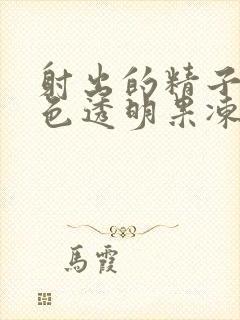 射出的精子
色透明果冻
馬霞